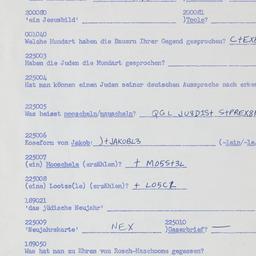 200080 200081
'ein Jesusbild' )Tools?
001040
Welche Mundart haben die Bauern Ihrer Gegend gesprochen? C+EX
225003
Haben die Juden die Mundart gesprochen?
225004
Hat man können einen Juden seiner deutschen Aussprache nach erken
225005
Was heisst mooscheln/mauscheln? QGL JUSDIST S+PREX
225006
Koseform von Jakob: )+JAKOBL3 (-lein/-le
225007
(ein) Mooschele (erzählen)? + MO55+3L
225008
(eine) Lootze(le) (erzählen)? + LO5C2
189021
'das jüdische Neujahr'
225009 225010
'Neujahrskarte' NEX )Gaserbrief?
189050
Was hat man zu Ehren von Rosch-Haschoone gegessen?